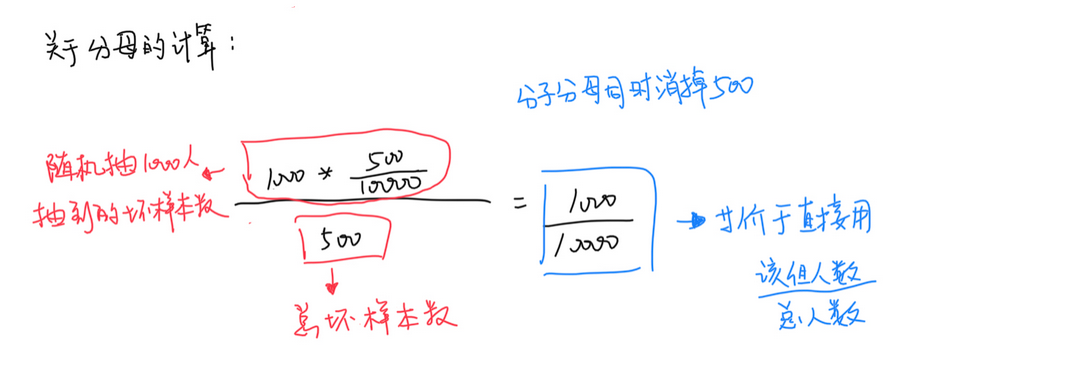 关于分母的计算：
分子分母同时消掉500
随机抽1000人
抽到的坏样本数
1000 * 500/10000
500
= 1000/10000
等价于直接用
该组人数
总人数
总坏样本数